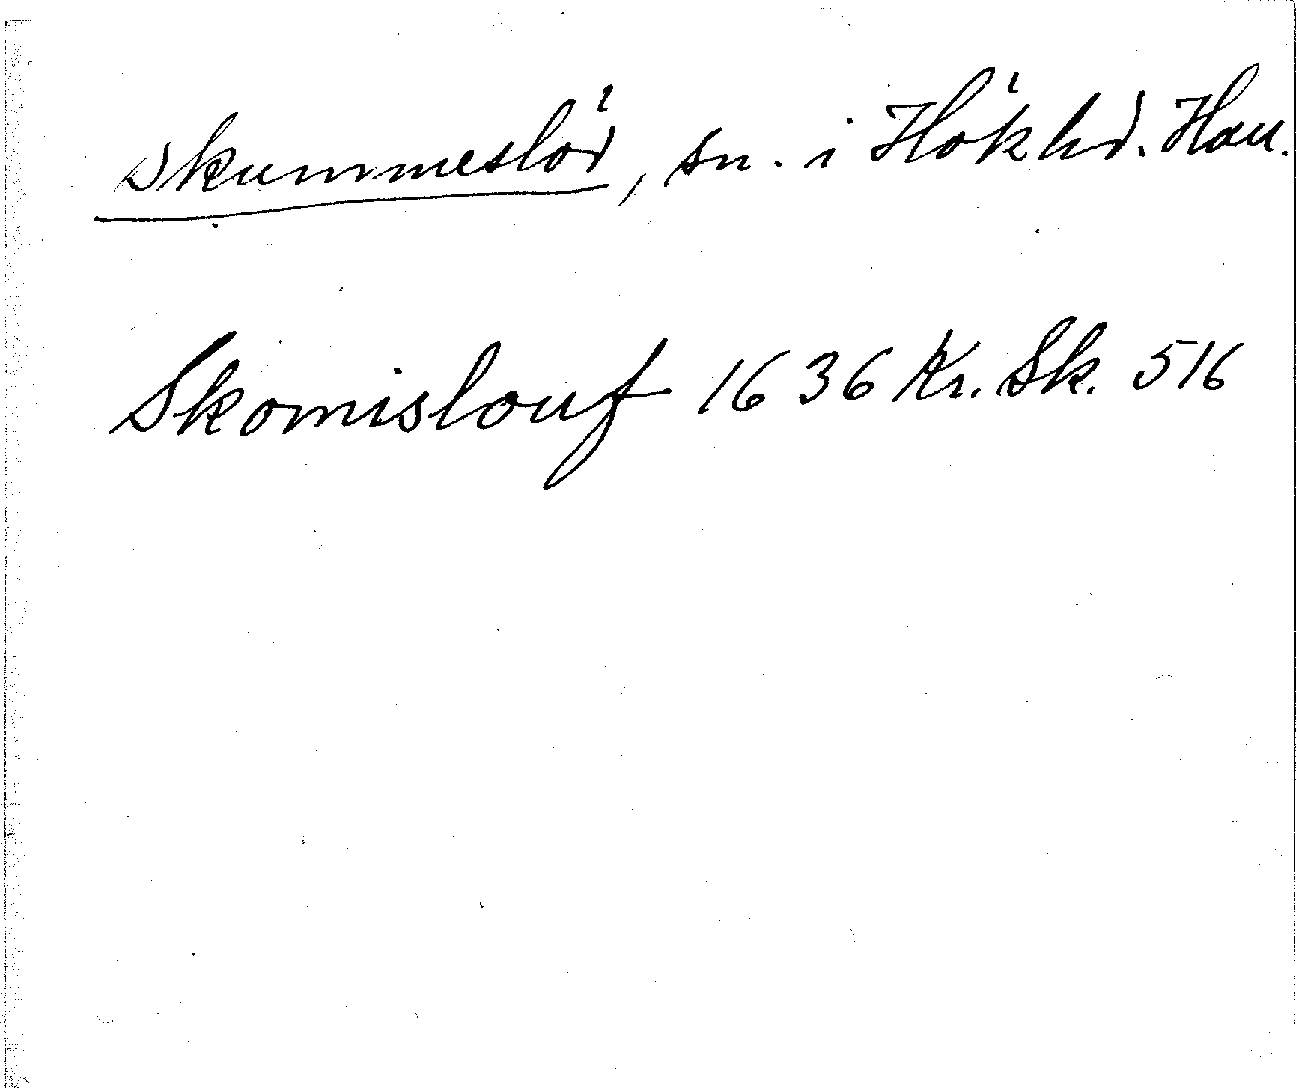 Skummeslöv, sn. i Höks hd. Hall.
Skomislouf 1636 Kr. Sk. 516